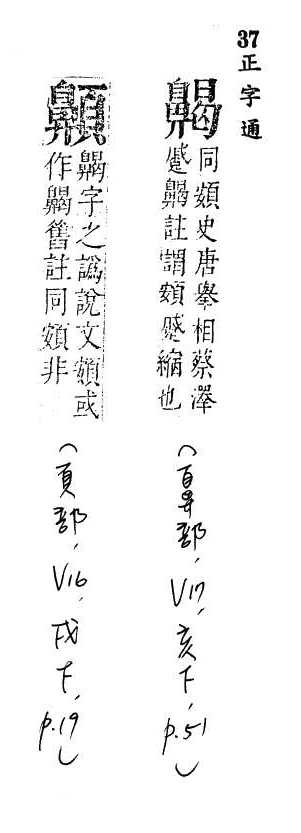 37正字通
齃
同頞史唐舉相蔡澤
蹙齃註謂頞蹙縮也
(鼻部, V17, 亥下, p.51)
齃字之譌說文頞或
作齃舊註同頞非
(頁部, V16, 戌下, p.19)